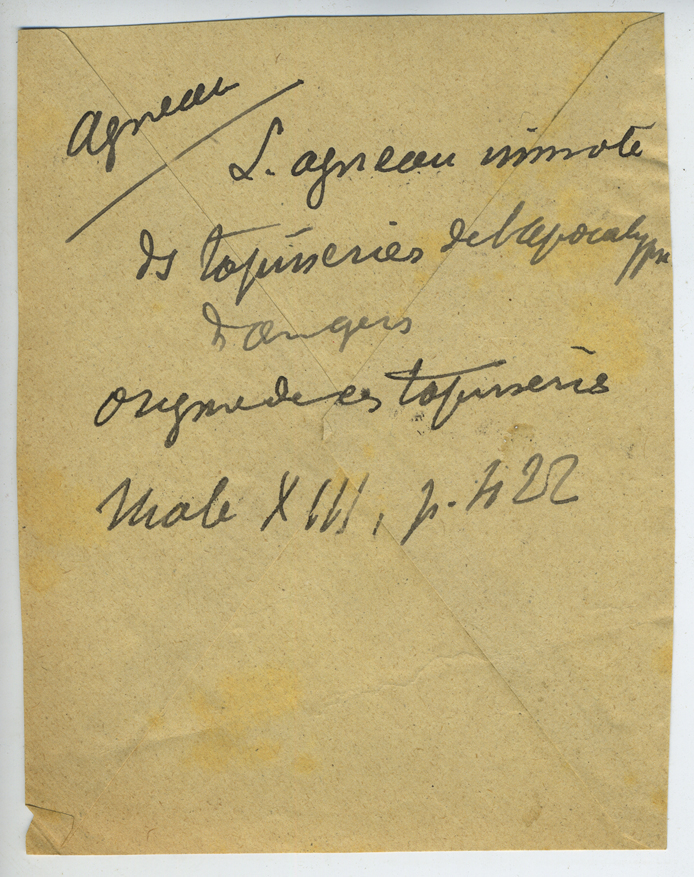 Agneau
L. agneau immolé
ds tapisseries de l'apocalypse
d'angers
origine de ces tapisseries
Male XIII, p. 422